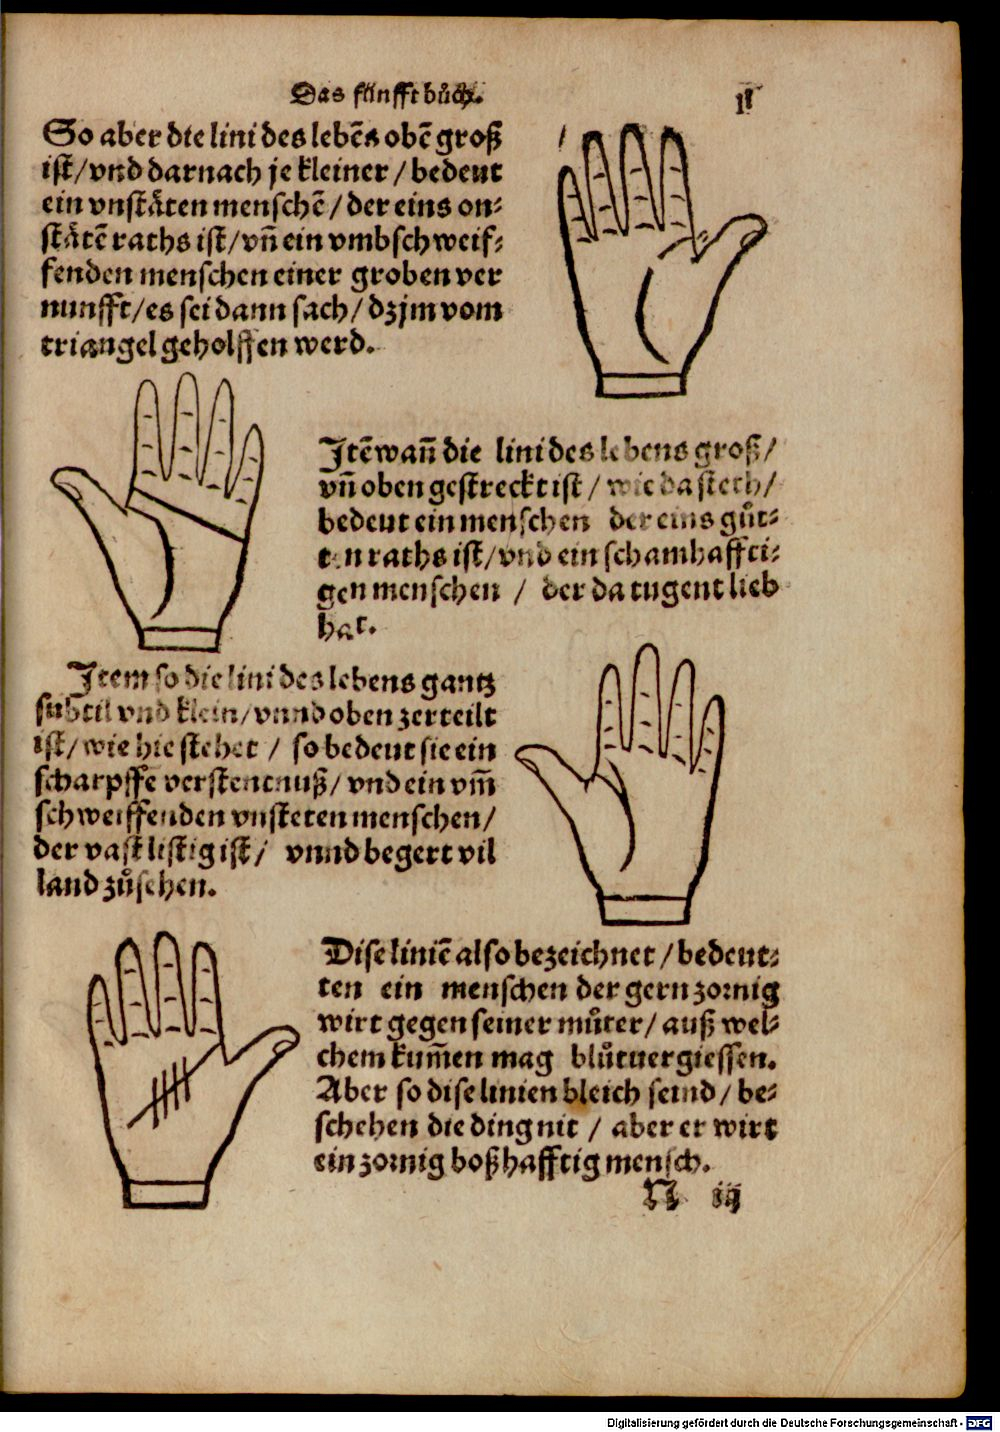 Das fünfft bůch.
So aber die lini des lebēs obē groß
ist/vnd darnach je kleiner/bedeut
ein vnstäten menschē/der eins on⸗
stätē raths ist/vñ ein vmbschweif⸗
fenden menschen einer groben ver
nunfft/es sei dann sach/dz jm vom
triangel geholffen werd.
Itē wañ die lini des lebens groß/
vñ oben gestreckt ist/wie da stech/
bedeut ein menschen der eins gůt⸗
ten raths ist/vnd ein schamhaffti⸗
gen menschen/der da tugent lieb
hat.
Item so die lini des lebens gantz
subtil vnd klein/vnnd oben zerteilt
ist/wie hie stehet/so bedeut sie ein
scharpffe verstentnuß/vnd ein vm̃
schweiffenden vnsteten menschen/
der vast listig ist/vnnd begert vil
land zůsehen.
Dise liniē also bezeichnet/bedeut⸗
ten ein menschen der gern zornig
wirt gegen seiner můter/auß wel⸗
chem kum̃en mag blůtuergiessen.
Aber so dise linien bleich seind/be⸗
schehen die ding nit/aber er wirt
ein zornig boßhafftig mensch.
N iij
Digitalisierung gefördert durch die Deutsche Forschungsgemeinschaft - DFG